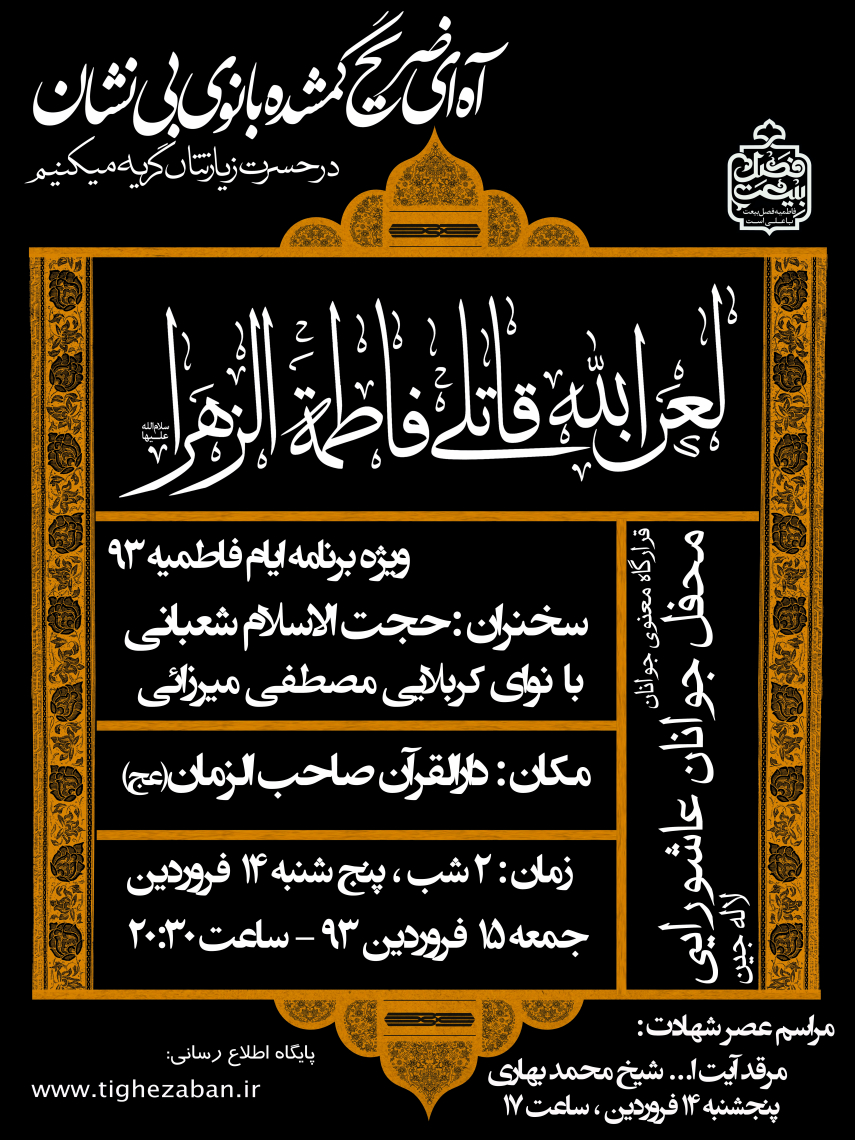 آه ای ضریح گمشده بانوی بی نشان
در حسرت زیارتتان گریه میکنیم
فصل
بیعت
فاطمیه فصل بیعت
با علی است
لعن الله قاتلی فاطمة الزهرا
سلام الله
علیها
ویژه برنامه ایام فاطمیه ۹۳
سخنران : حجت الاسلام شعبانی
با نوای کربلایی مصطفی میرزائی
مکان : دارالقرآن صاحب الزمان (عج)
زمان : ۲ شب ، پنج شنبه ۱۴ فروردین
جمعه ۱۵ فروردین ۹۳ – ساعت ۲۰:۳۰
قرارگاه معنوی جوانان
محفل جوانان عاشورایی
لاله جین
مراسم عصر شهادت :
مرقد آیت ا... شیخ محمد بهاری
پنجشنبه ۱۴ فروردین ، ساعت ۱۷
پایگاه اطلاع رسانی:
www.tighezaban.ir